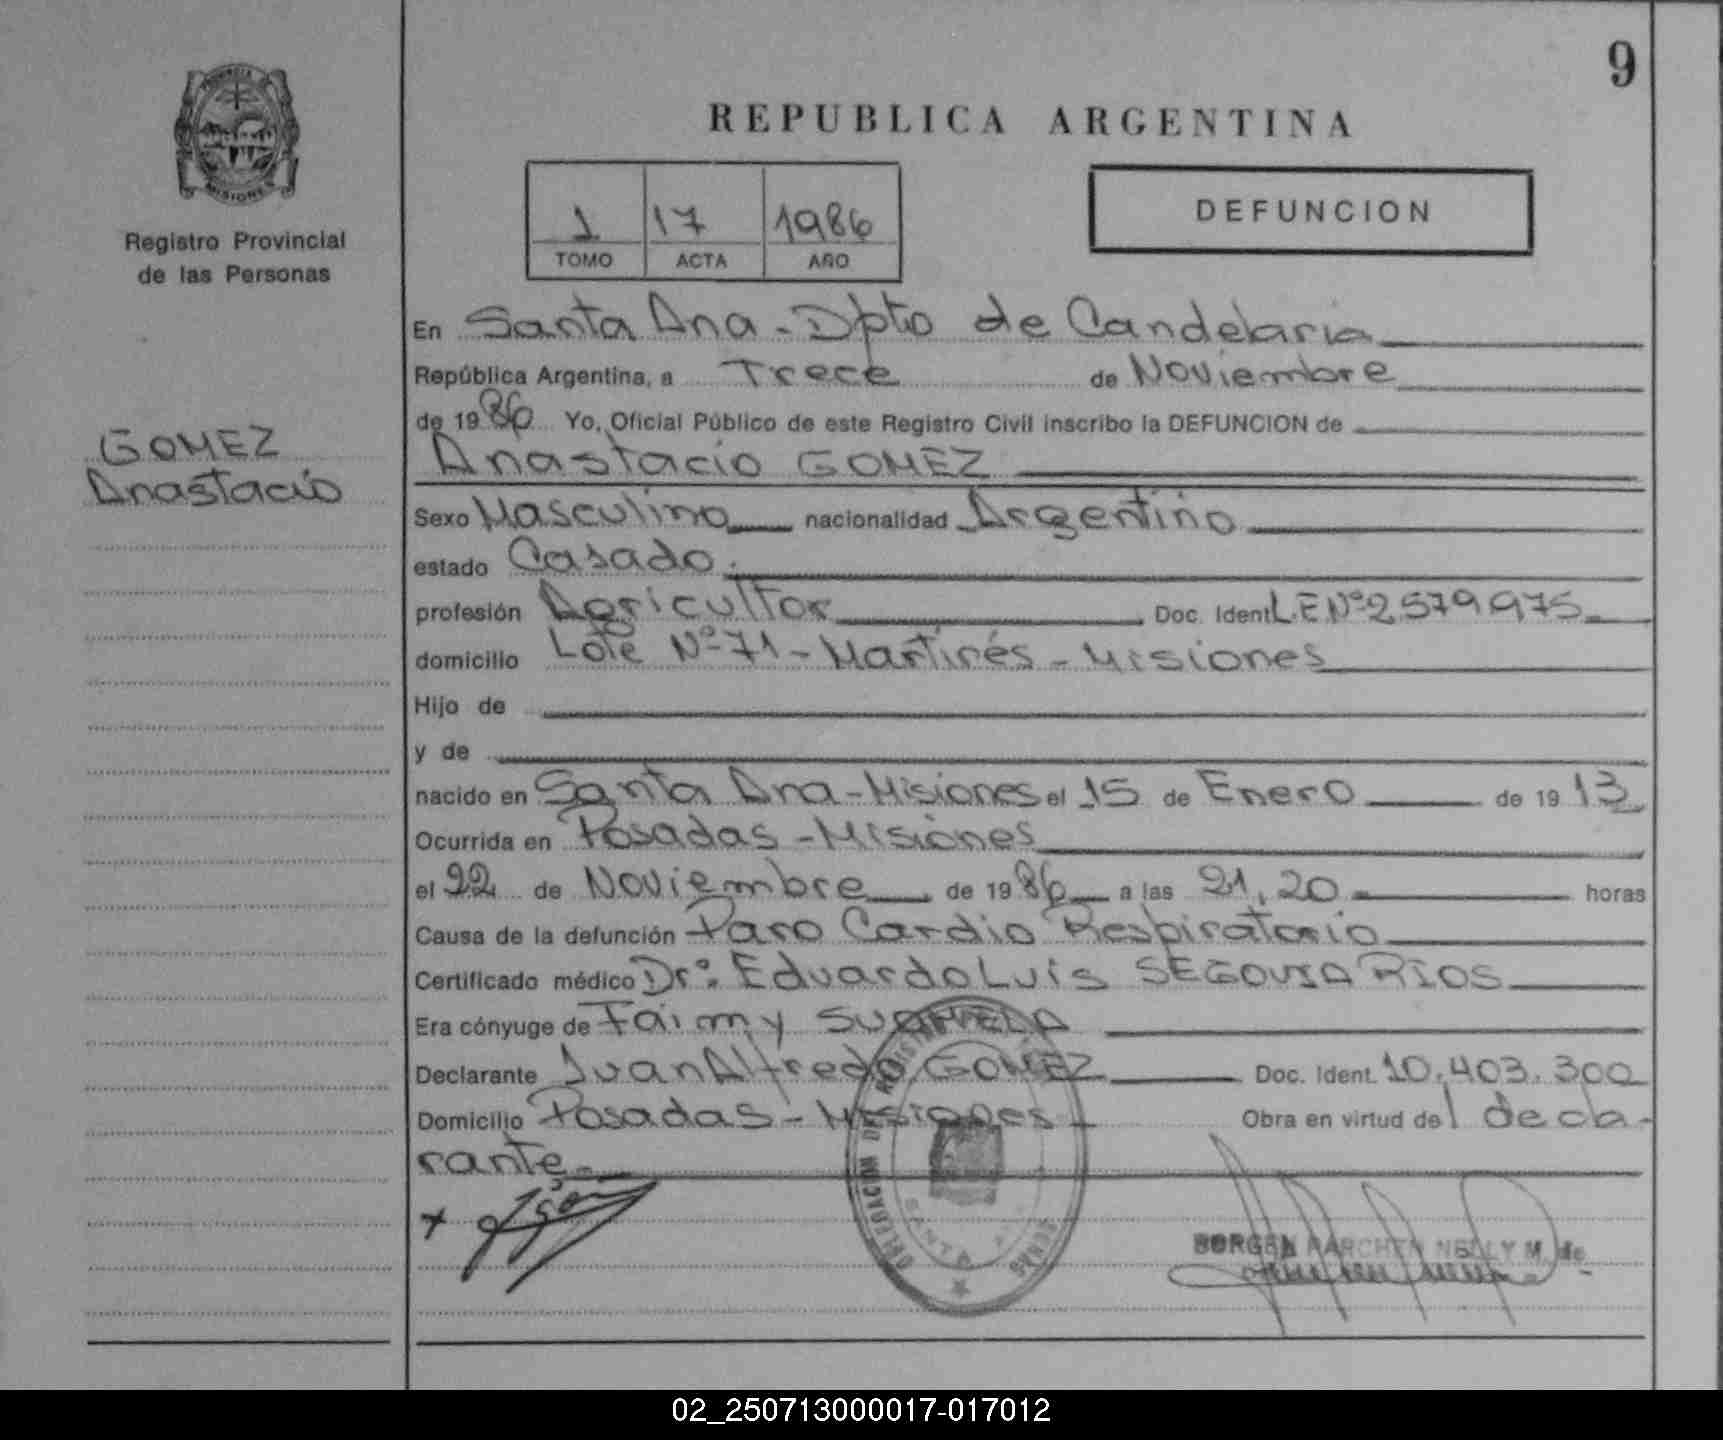 9
REPUBLICA ARGENTINA
PROVINCIA DE
MISIONES
Registro Provincial
de las Personas
1 17 1986
TOMO ACTA AÑO
DEFUNCION
GOMEZ
Anastacio
En Santa Ana - Dpto de Candelaria
República Argentina, a Trece de Noviembre
de 1986 Yo, Oficial Público de este Registro Civil inscribo la DEFUNCION de
Anastacio GOMEZ
Sexo Masculino nacionalidad Argentino
estado Casado.
profesión Agricultor Doc. Ident L.E Nº 2579975
domicilio Lote Nº 71 - Martires - Misiones
Hijo de
y de
nacido en Santa Ana - Misiones el 15 de Enero de 1913
Ocurrida en Posadas - Misiones
el 22 de Noviembre de 1986 a las 21,20 horas
Causa de la defunción Paro Cardio Respiratorio
Certificado médico Dr: Eduardo Luis SEGOVIA RIOS
Era cónyuge de
Declarante Juan Alfredo GOMEZ Doc. Ident. 10.403.300
Domicilio Posadas - Misiones Obra en virtud del decla-
rante -
DELEGACION DEL REGISTRO
SANTA
NELLY M. de
02_250713000017-017012